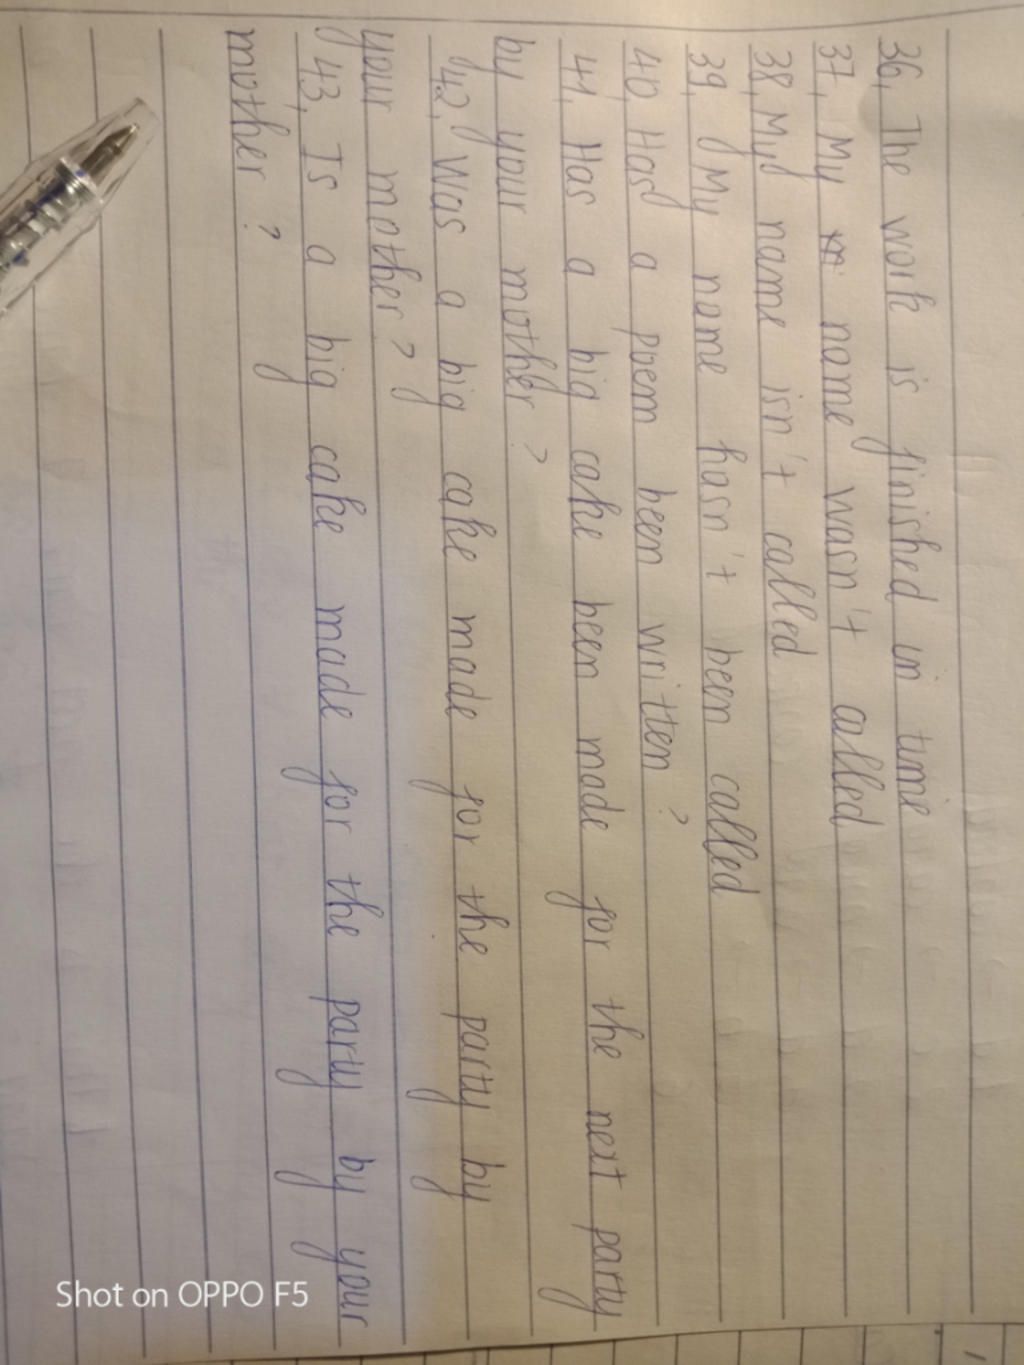 36, The work is finished in time
37, My name wasn't called
38, My name isn't called
39, My name hasn't been called
40, Has a poem been written?
41, Has a big cake been made for the next party
by your mother?
42, Was a big cake made for the party by
your mother?
43, Is a big cake made for the party by your
mother?
Shot on OPPO F5